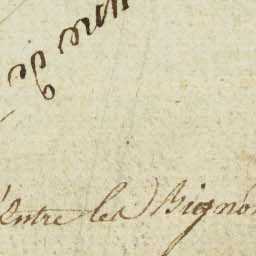 de
Entre les Bigno